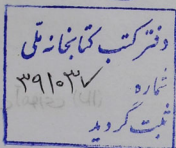 دفتر کتب کتابخانه ملی
شماره ۳۹۱۰۳۷
ثبت گردید